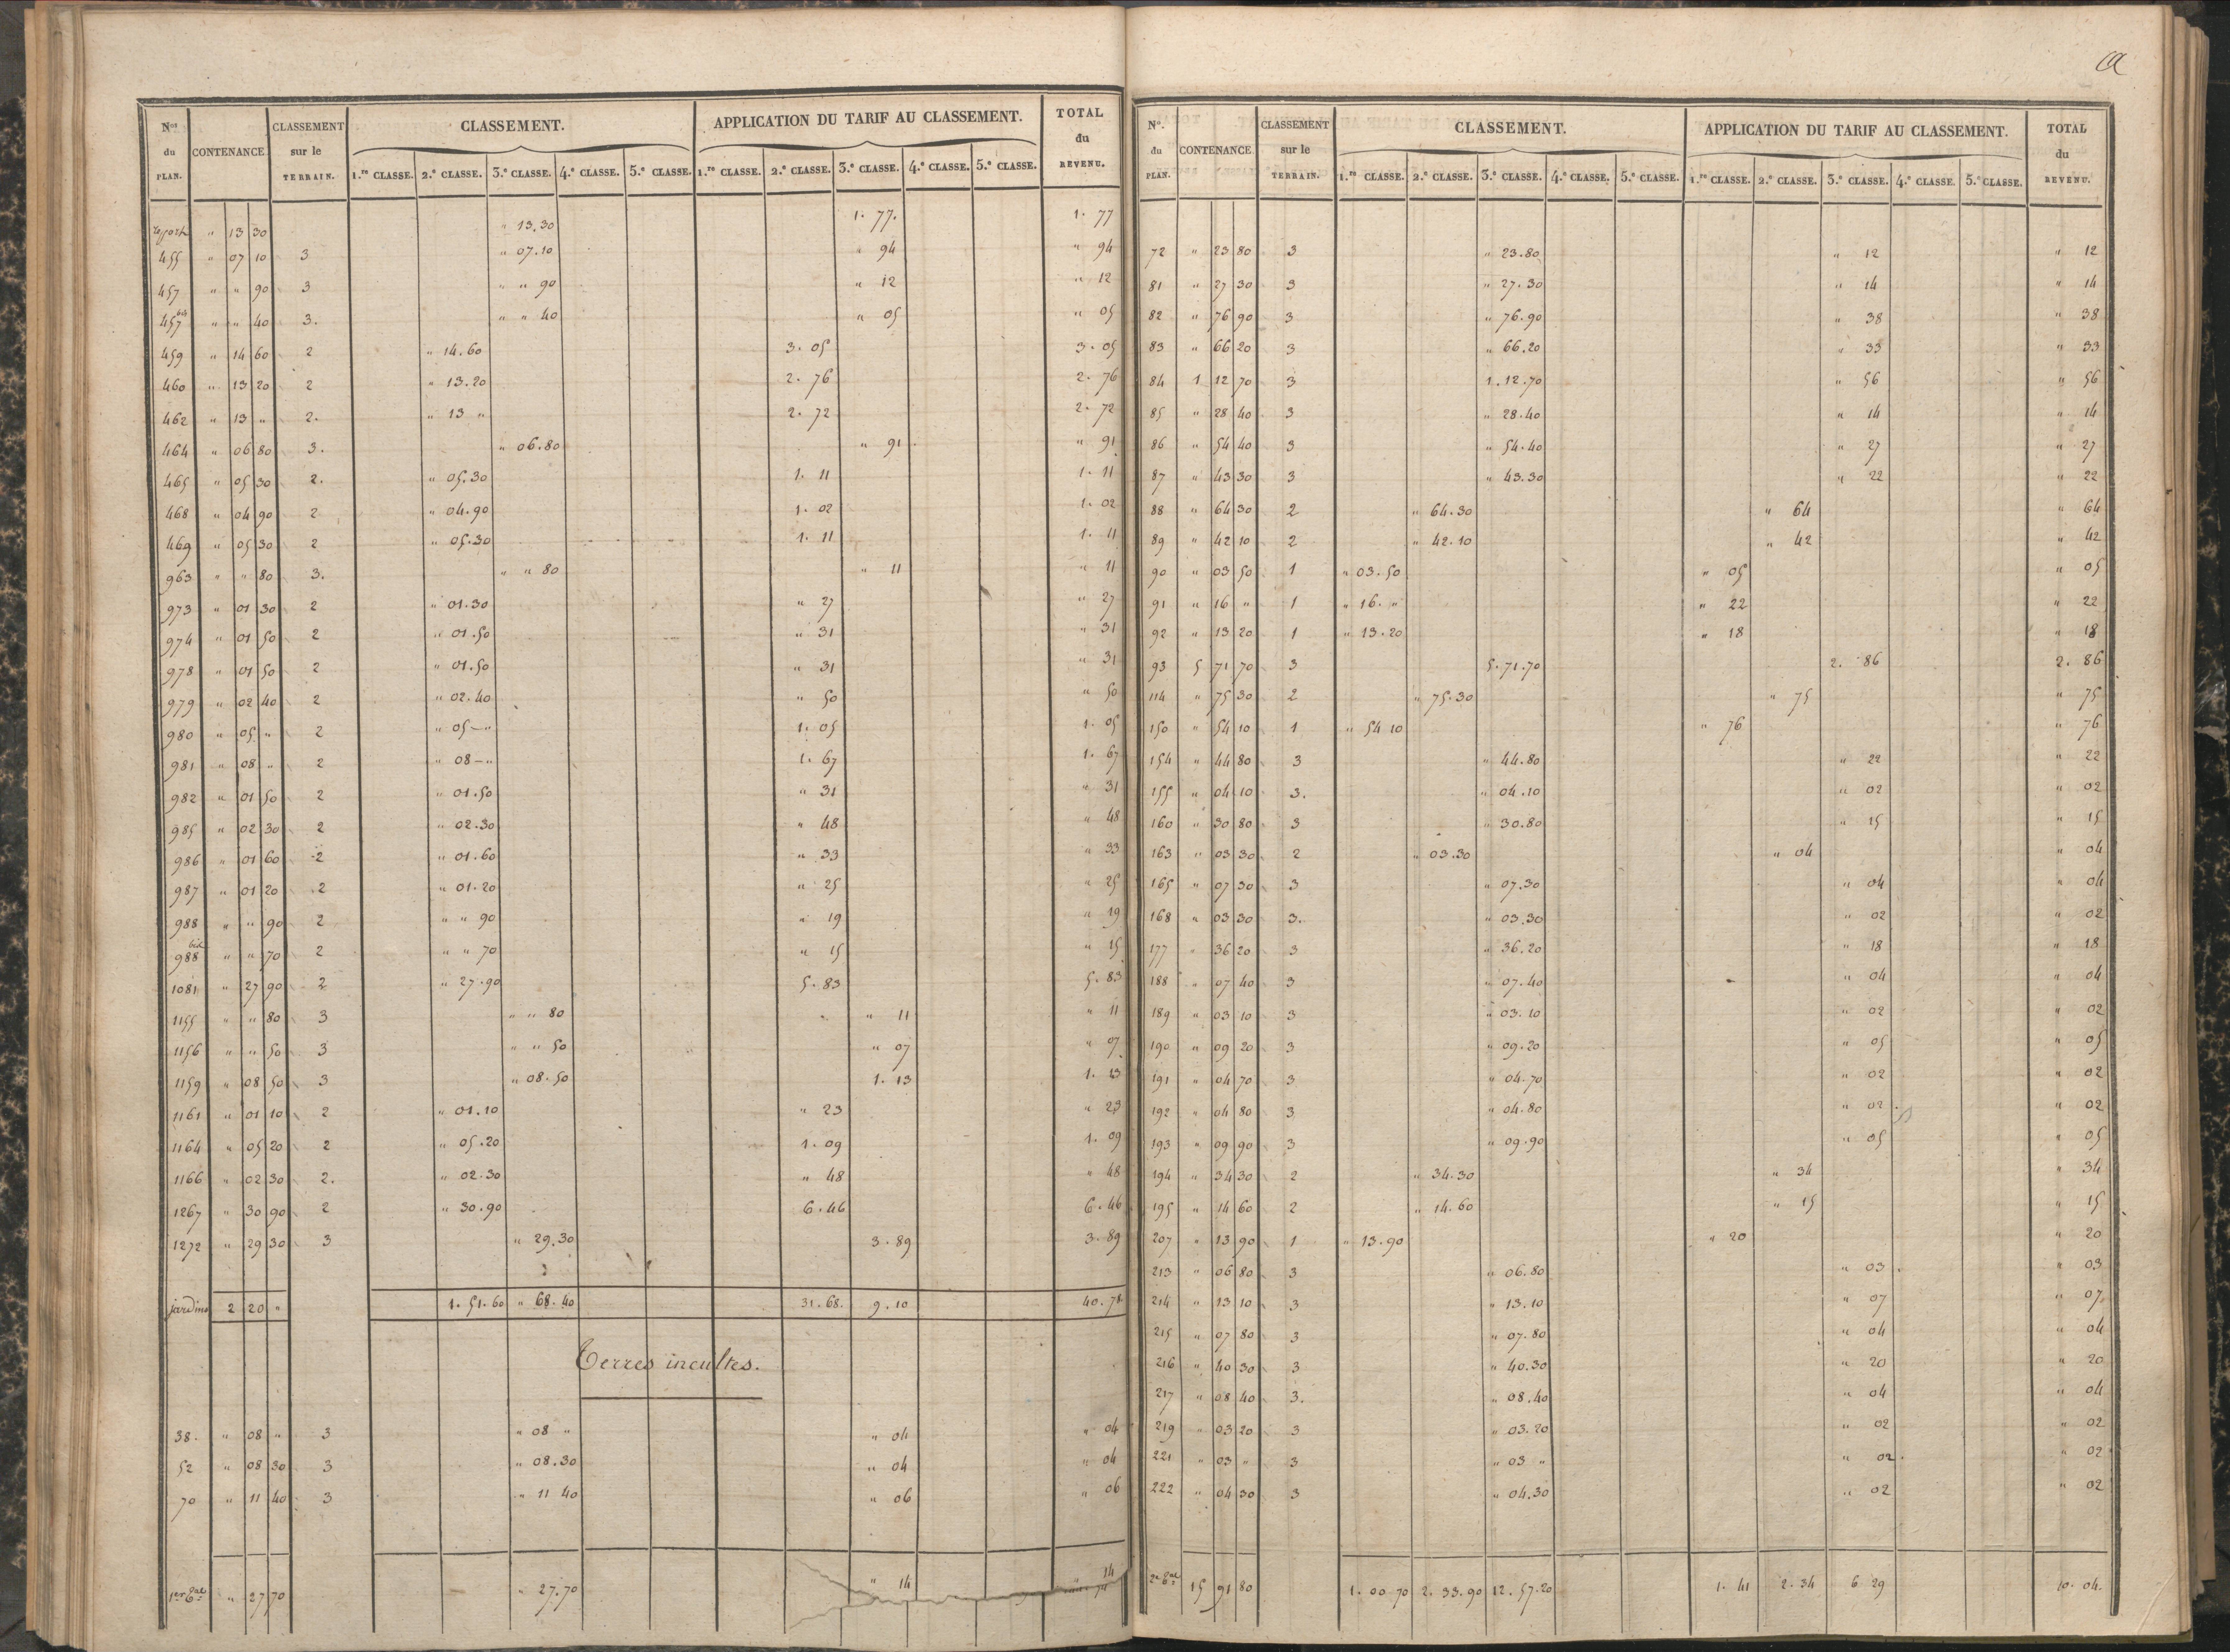 a
Nos du PLAN. CONTENANCE. CLASSEMENT sur le TERRAIN. CLASSEMENT. APPLICATION DU TARIF AU CLASSEMENT. TOTAL du REVENU.
1.re CLASSE. 2.e CLASSE. 3.e CLASSE. 4.e CLASSE. 5.e CLASSE. 1.re CLASSE. 2.e CLASSE. 3.e CLASSE. 4.e CLASSE. 5.e CLASSE.
report " 13 30 " 13.30 1. 77. 1. 77
455 " 07 10 3 " 07.10 " 94 " 94
457 " " 90 3 " " 90 " 12 " 12
457 bis " " 40 3. " " 40 " 05 " 05
459 " 14 60 2 " 14.60 3. 05 3. 05
460 " 13 20 2 " 13.20 2. 76 2. 76
462 " 13 " 2. " 13 " 2. 72 2. 72
464 " 06 80 3. " 06.80 " 91 " 91
465 " 05 30 2. " 05.30 1. 11 1. 11
468 " 04 90 2 " 04.90 1. 02 1. 02
469 " 05 30 2 " 05.30 1. 11 1. 11
963 " " 80 3. " " 80 " 11 " 11
973 " 01 30 2 " 01.30 " 27 " 27
974 " 01 50 2 " 01.50 " 31 " 31
978 " 01 50 2 " 01.50 " 31 " 31
979 " 02 40 2 " 02.40 " 50 " 50
980 " 05 " 2 " 05 - " 1. 05 1. 05
981 " 08 " 2 " 08 - " 1. 67 1. 67
982 " 01 50 2 " 01.50 " 31 " 31
985 " 02 30 2 " 02.30 " 48 " 48
986 " 01 60 2 " 01.60 " 33 " 33
987 " 01 20 2 " 01.20 " 25 " 25
988 " " 90 2 " " 90 " 19 " 19
988 bis " " 70 2 " " 70 " 15 " 15
1081 " 27 90 2 " 27.90 5. 83 5. 83
1155 " " 80 3 " " 80 " 11 " 11
1156 " " 50 3 " " 50 " 07 " 07
1159 " 08 50 3 " 08.50 1. 13 1. 13
1161 " 01 10 2 " 01.10 " 23 " 23
1164 " 05 20 2 " 05.20 1. 09 1. 09
1166 " 02 30 2. " 02.30 " 48 " 48
1267 " 30 90 2 " 30.90 6. 46 6. 46
1272 " 29 30 3 " 29.30 3. 89 3. 89
jardins 2 20 " 1. 51. 60 " 68. 40 31. 68. 9. 10 40. 78
Terres incultes.
38. " 08 " 3 " 08 " " 04 " 04
52 " 08 30 3 " 08.30 " 04 " 04
70 " 11 40 3 " 11 40 " 06 " 06
" 27 70 " 27.70 " 14 " 14
No. du PLAN. CONTENANCE. CLASSEMENT sur le TERRAIN. CLASSEMENT. APPLICATION DU TARIF AU CLASSEMENT. TOTAL du REVENU.
1.re CLASSE. 2.e CLASSE. 3.e CLASSE. 4.e CLASSE. 5.e CLASSE. 1.re CLASSE. 2.e CLASSE. 3.e CLASSE. 4.e CLASSE. 5.e CLASSE.
72 " 23 80 3 " 23.80 " 12 " 12
81 " 27 30 3 " 27.30 " 14 " 14
82 " 76 90 3 " 76.90 " 38 " 38
83 " 66 20 3 " 66.20 " 33 " 33
84 1 12 70 3 1.12.70 " 56 " 56
85 " 28 40 3 " 28.40 " 14 " 14
86 " 54 40 3 " 54.40 " 27 " 27
87 " 43 30 3 " 43.30 " 22 " 22
88 " 64 30 2 " 64.30 " 64 " 64
89 " 42 10 2 " 42.10 " 42 " 42
90 " 03 50 1 " 03.50 " 05 " 05
91 " 16 " 1 " 16. " " 22 " 22
92 " 13 20 1 " 13.20 " 18 " 18
93 5 71 70 3 5.71.70 2. 86 2. 86
114 " 75 30 2 " 75.30 " 75 " 75
150 " 54 10 1 " 54 10 " 76 " 76
154 " 44 80 3 " 44.80 " 22 " 22
155 " 04 10 3. " 04.10 " 02 " 02
160 " 30 80 3 " 30.80 " 15 " 15
163 " 03 30 2 " 03.30 " 04 " 04
165 " 07 30 3 " 07.30 " 04 " 04
168 " 03 30 3. " 03.30 " 02 " 02
177 " 36 20 3 " 36.20 " 18 " 18
188 " 07 40 3 " 07.40 " 04 " 04
189 " 03 10 3 " 03.10 " 02 " 02
190 " 09 20 3 " 09.20 " 05 " 05
191 " 04 70 3 " 04.70 " 02 " 02
192 " 04 80 3 " 04.80 " 02 " 02
193 " 09 90 3 " 09.90 " 05 " 05
194 " 34 30 2 " 34.30 " 34 " 34
195 " 14 60 2 " 14.60 " 15 " 15
207 " 13 90 1 " 13.90 " 20 " 20
213 " 06 80 3 " 06.80 " 03 " 03
214 " 13 10 3 " 13.10 " 07 " 07
215 " 07 80 3 " 07.80 " 04 " 04
216 " 40 30 3 " 40.30 " 20 " 20
217 " 08 40 3. " 08.40 " 04 " 04
219 " 03 20 3 " 03.20 " 02 " 02
221 " 03 " 3 " 03 " " 02 " 02
222 " 04 30 3 " 04.30 " 02 " 02
15 91 80 1. 00 70 2. 33. 90 12. 57. 20 1. 41 2. 34 6 29 10. 04.